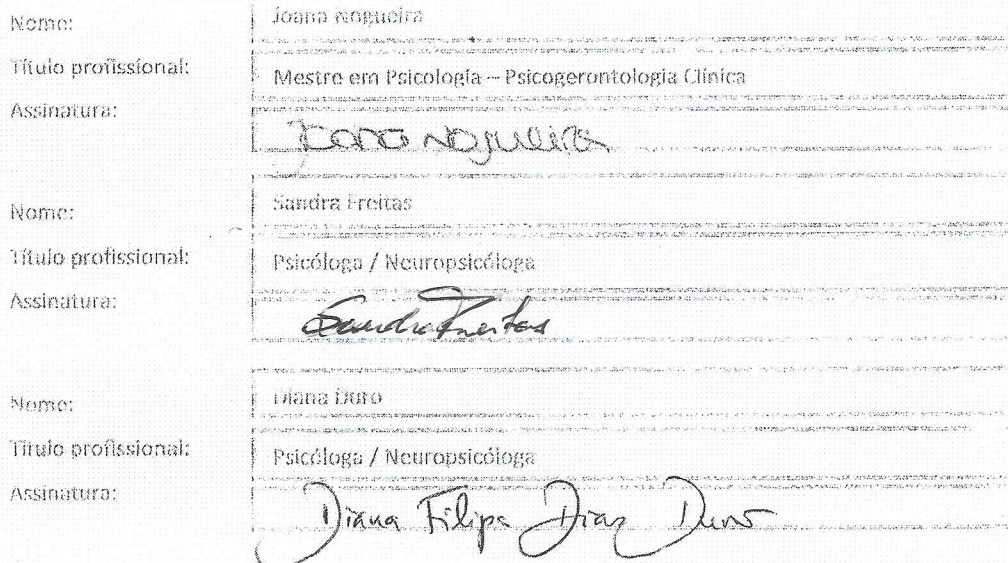 Nome: Joana Nogueira
Título profissional: Mestre em Psicologia – Psicogerontologia Clínica
Assinatura: Joana Nogueira
Nome: Sandra Freitas
Título profissional: Psicóloga / Neuropsicóloga
Assinatura: Sandra Freitas
Nome: Diana Duro
Título profissional: Psicóloga / Neuropsicóloga
Assinatura: Diana Filipa Dias Duro